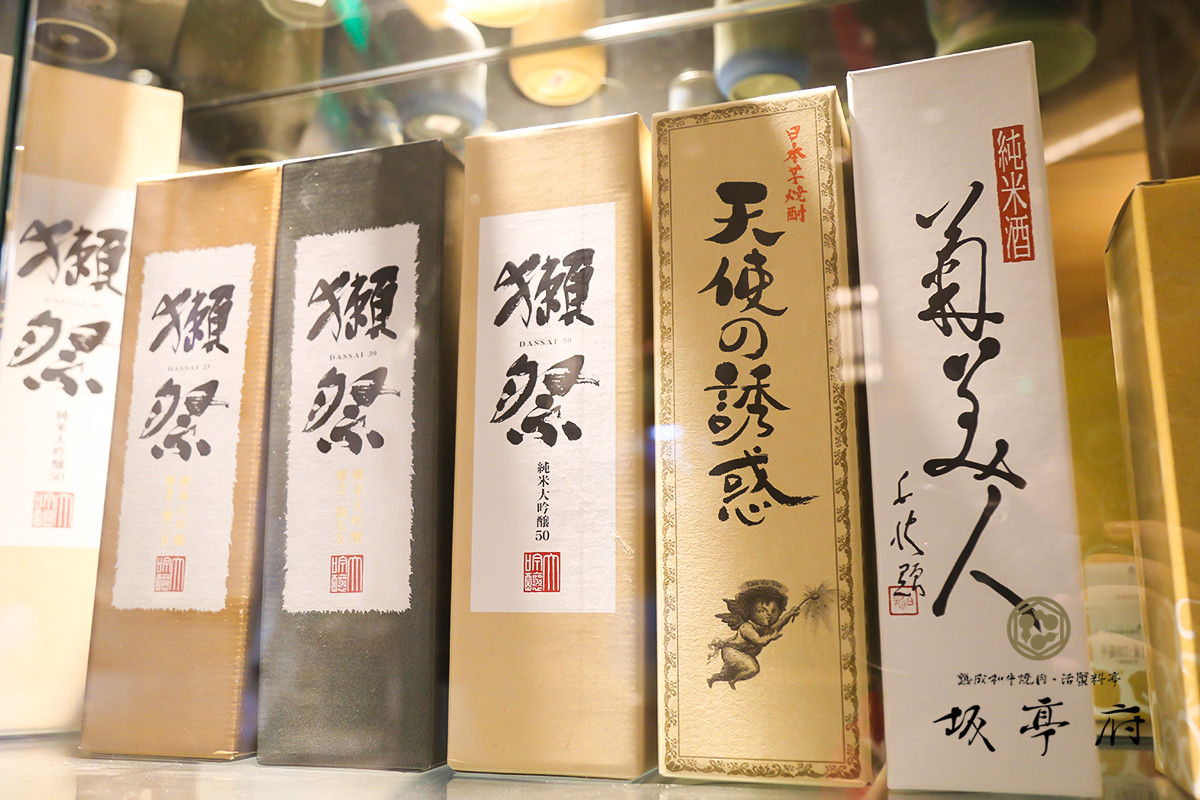 獺祭
純米大吟醸50
獺祭
DASSAI 23
獺祭
DASSAI 39
獺祭
DASSAI 50
純米大吟醸50
日本芋焼酎
天使の誘惑
純米酒
菊美人
熟成和牛燒肉、活蟹料亭
坂亭府